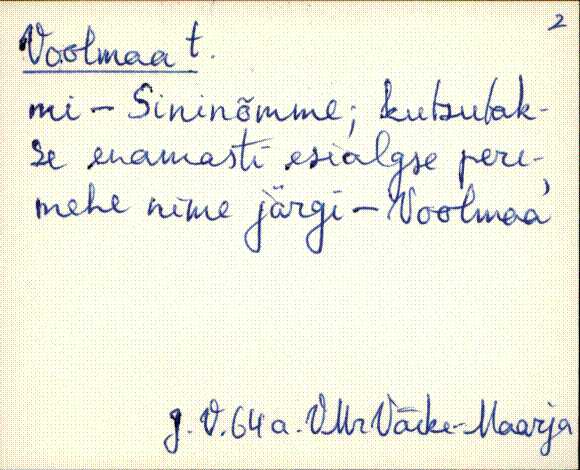 2
Voolmaa t.
mi – Sininõmme; kutsutak-
se enamasti esialgse pere-
mehe nime järgi – Voolmaa
J. V. 64 a. VMr Väike-Maarja